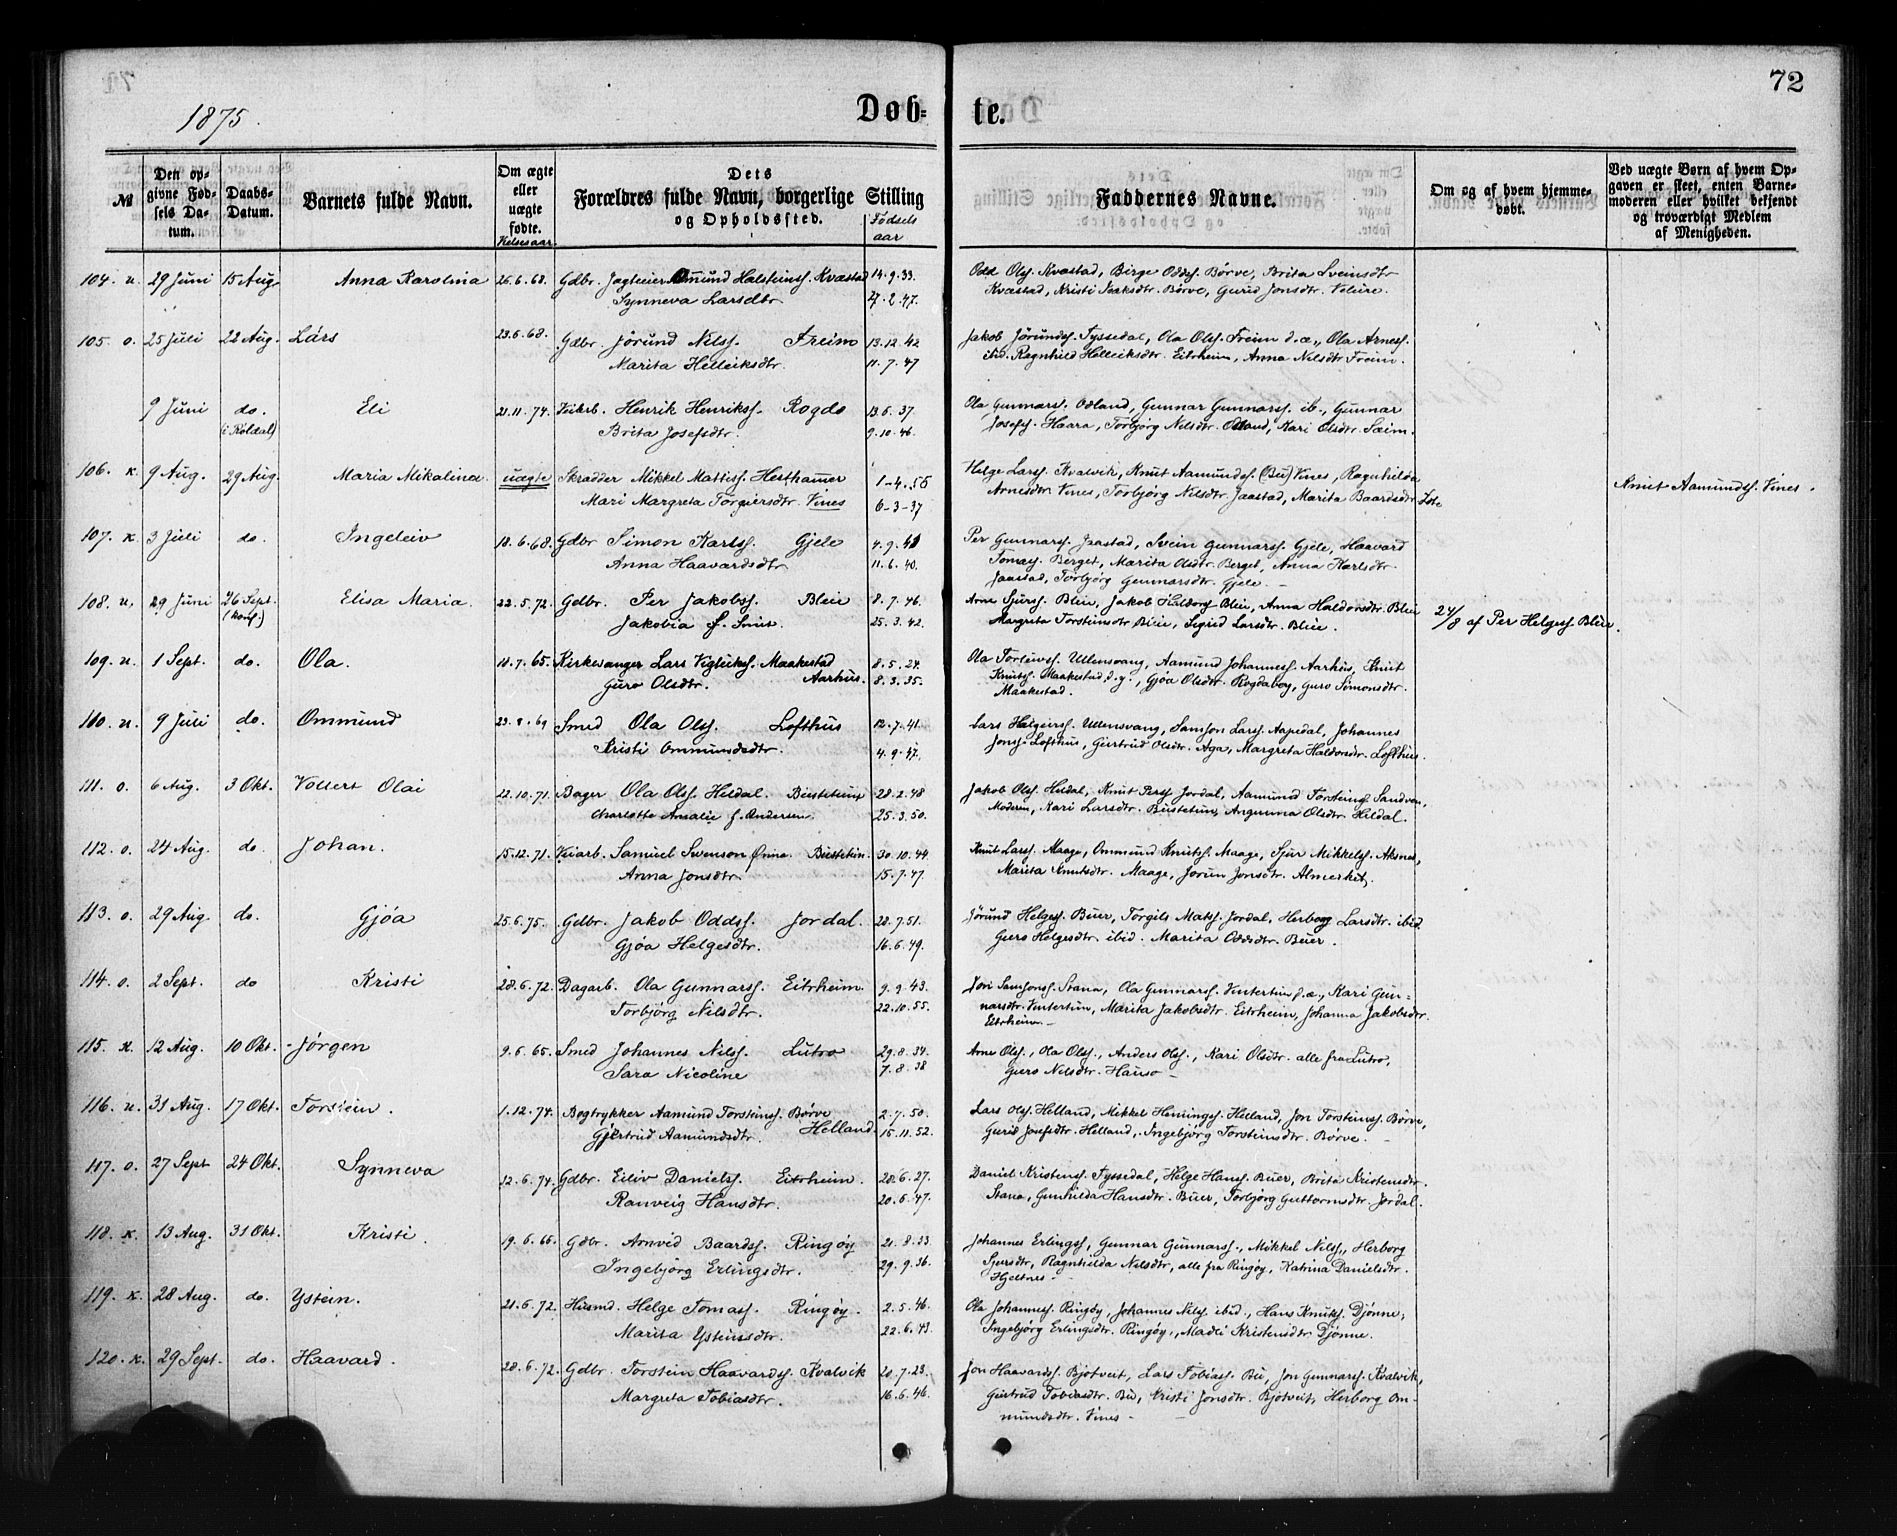 72
1875.
Døb- te.
№
Den opgivne Fødsels Datum.
Daabs-Datum.
Barnets fulde Navn.
Om ægte eller uægte fødte.
Vielsesaar
Dets Forældres fulde Navn, borgerlige Stilling og Opholdssted.
Fødsels aar
Faddernes Navne.
Om og af hvem hjemmedøbt.
Ved uægte Børn af hvem Opgaven er skeet, enten Barnemoderen eller hvilket bekjendt og troværdigt Medlem af Menigheden.
104. u. 29 Juni 15 Aug. Anna Karolina 26.6.68. Gdbr. Jagteier Omund Halsteinss. Kvæstad 14.9.33. Odd Olss. Kvæstad, Birge Oddss. Børve, Brita Sveinsdtr
Synneva Larsdtr 27.2.47. Kvæstad, Kristi Isaksdtr. Børve, Gurid Jonsdtr. Velure.
105. o. 25 Juli 22 Aug. Lars 23.6.68. Gdbr. Jørund Nilss. Freim 13.12.42 Jakob Jørundss. Tyssedal, Ola Olss. Freim d.æ., Ola Arness.
Marita Helleiksdtr. 11.7.47 ibid. Ragnhild Helleiksdtr. Eitrheim, Anna Nilsdtr Freim.
9 Juni do. Eli 21.11.74. Veiarb. Henrik Henrikss. Rogdo 13.6.37. Ola Gunnars. Odland, Gunnar Gunnarss. ib., Gunnar
(i Røldal) Brita Josefsdtr. 9.10.46. Josefs. Haara, Torbjørg Nilsdtr. Odland, Kari Olsdtr. Seim.
106. K. 9 Aug. 29 Aug. Maria Mikalina. uægte Skrædder Mikkel Mattiss. Hesthamer 1-4.56 Helge Larss. Kvalvik, Knut Aamundss. (Bu) Vines, Ragnhilda Knut Aamundss. Vines.
Mari Margreta Torgiersdtr. Vines 6-3-37 Arnesdtr Vines, Torbjørg Nilsdtr. Jaastad, Marita Baardsdtr. Lote
107. K. 3 Juli do. Ingeleiv 18.6.68. Gdbr Simon Karlss. Gjele 4.9.41 Per Gunnarss. Jaastad, Svein Gunnarss. Gjele, Haavard
Anna Haavardsdtr 11.6.40. Tomass. Berget, Marita Olsdtr. Berget, Anna Karlsdtr.
Jaastad, Torbjørg Gunnarsdtr. Gjele.
108. u. 29 Juni 26 Sept. Elisa Maria. 22.5.72. Gdbr. Per Jakobss. Bleie 8.7.46. Arne Sjurss. Bleie, Jakob Haldorss. Bleie, Anna Haldorsdtr. Bleie 24/8 af Per Helgess. Bleie.
(Konf.) Jakobia f. Smit. 25.3.42. Margreta Torsteinsdtr Bleie, Sigrid Larsdtr. Bleie.
109. u. 1 Sept. do. Ola. 11.7.65. Kirkesanger Lars Vigleikss. Maakestad 8.5.24. Ola Torleivss. Ullensvang, Aamund Johanness. Aarhus, Knut
Guro Olsdtr. Aarhus. 8.3.35. Knutss. Maakestad, d.y., Gjøa Olsdtr. Rogdaberg, Guro Simonsdtr.
Maakestad.
110. u. 9 Juli do. Ommund 23.8.69 Smed Ola Olss. Lofthus 12.7.41. Lars Helgeirss. Ullensvang, Samson Larss. Aapedal, Johannes
Kristi Ommundsdtr. 4.9.47. Jonss. Lofthus, Gjertrud Olsdtr. Aga, Margreta Haldorsdtr. Lofthus.
111. o. 6 Aug. 3 Okt. Vollert Olai 22.10.71. Bager Ola Olss. Hildal. Bustetun 28.2.48 Jakob Olss. Hildal, Knut Perss Jordal, Aamund Torsteinss. Sandven,
Charlotte Amalie f. Andersen. 25.3.50. Moderen, Kari Larsdtr. Bustetun, Angunna Olsdtr. Hildal.
112. o. 24 Aug. do. Johan. 15.12.71. Veiarb. Samuel Swenson Ønne. Bustetun. 30.10.44. Knut Larss. Maage, Ommund Knutss. Maage, Sjur Mikkelss. Aksnes,
Anna Jonsdtr. 15.7.47. Marita Knutsdtr. Maage, Jorun Jonsdtr. Almerket.
113. o. 29 Aug. do. Gjøa 25.6.75. Gdbr. Jakob Oddss. Jordal. 28.7.51. Jørund Helgess. Buer, Torgils Matss. Jordal, Herborg Larsdtr. ibid.
Gjøa Helgesdtr. 16.6.49. Guro Helgesdtr ibid. Marita Oddsdtr. Buer.
114. o. 2 Sept. do Kristi 28.6.72. Dagarb. Ola Gunnarss. Eitrheim. 9.9.43. Jon Samsonss. Stana, Ola Gunnarss. Vintertun d.æ., Kari Gun-
Torbjørg Nilsdtr. 22.10.55. narsdtr. Vintertun, Marita Jakobsdtr. Eitrheim, Johanna Jakobsdtr.
Eitrheim.
115. K. 12 Aug. 10 Okt. Jørgen 9.6.65. Smed Johannes Nilss. Lutro 29.8.34. Arne Olss., Ola Olss., Anders Olss., Kari Olsdtr. alle fra Lutro,
Sara Nicoline 7.8.38 Guro Nilsdtr. Hauso
116. u. 31 Aug. 17 Okt. Torstein. 1.12.74. Bogtrykker Aamund Torsteinss. Børve 2.7.50. Lars Olss. Helland, Mikkel Hemingss. Helland, Jon Torsteinss. Børve,
Gjertrud Aamundsdtr. Helland. 15.11.52. Gurid Josefsdtr. Helland, Ingebjørg Torsteinsdtr. Børve.
117. o. 27 Sept 24 Okt. Synneva 12.6.74. Gdbr. Eiliv Danielss. Eitrheim. 28.6.27. Daniel Kristenss. Tyssedal, Helge Hanss. Buer, Brita Kristensdtr.
Ranveig Hansdtr. 20.6.47. Stana, Gunhilda Hansdtr. Buer, Torbjørg Guttormsdtr. Jordal.
118. K. 13 Aug. 31 Okt. Kristi. 19.6.66. Gdbr. Arnvid Baardss. Ringøy 21.8.33 Johannes Erlingss, Gunnar Gunnarss., Mikkel Nilss., Herborg
Ingebjørg Erlingsdtr. 29.9.36. Sjursdtr, Ragnhilda Nilsdtr, alle fra Ringøy, Katrina Danielsdtr.
Hjeltnes
119. K. 28 Aug. do. Ystein. 21.6.72. Husmd. Helge Tomass. Ringøy. 2.5.46. Ola Johanness. Ringøy, Johannes Nilss. ibid., Hans Knutss. Djønne,
Marita Ysteinsdtr. 22.6.43. Ingebjørg Erlingsdtr. Ringøy, Madli Kristensdtr. Djønne.
120. K. 29 Sept. do. Haavard. 28.6.72. Gdbr. Torstein Haavardss. Kvalvik 20.7.23. Jon Haavardss. Bjotveit, Lars Tobiass. Bu, Jon Gunnarss. Kvalvik,
Margreta Tobiasdtr. 16.6.46. Gjertrud Tobiasdtr. Bu, Kristi Jonsdtr. Bjotveit, Herborg Om-
mundsdtr. Vines